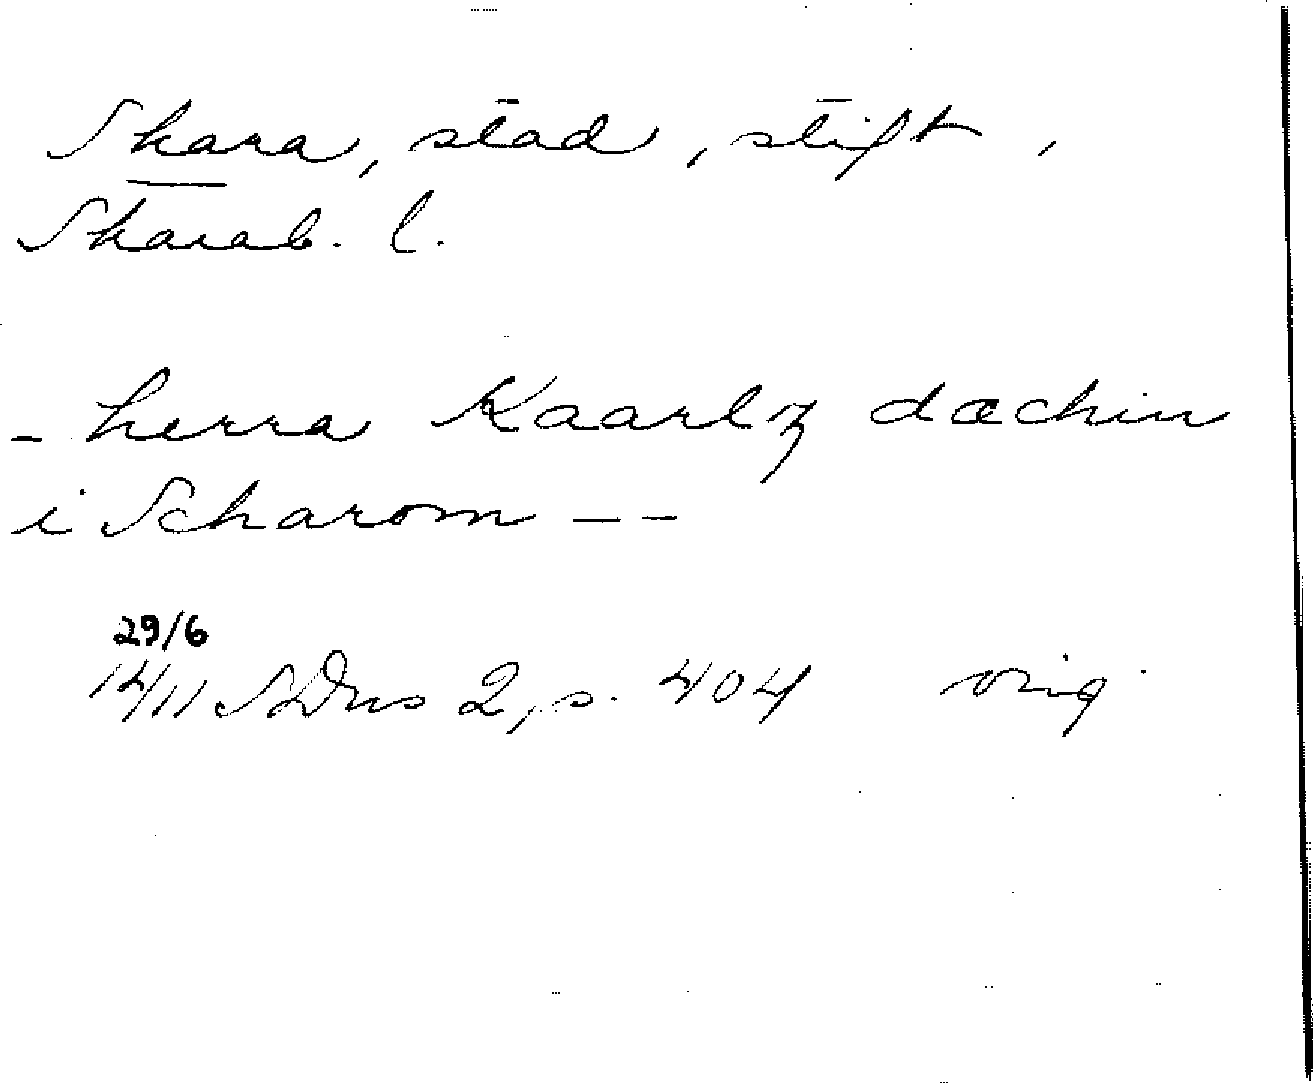 Skara, stad, stift,
Skarab. l.
- herra Kaarlz dæchin
i Scharom --
29/6
14/11 SDns 2, s. 404 orig.